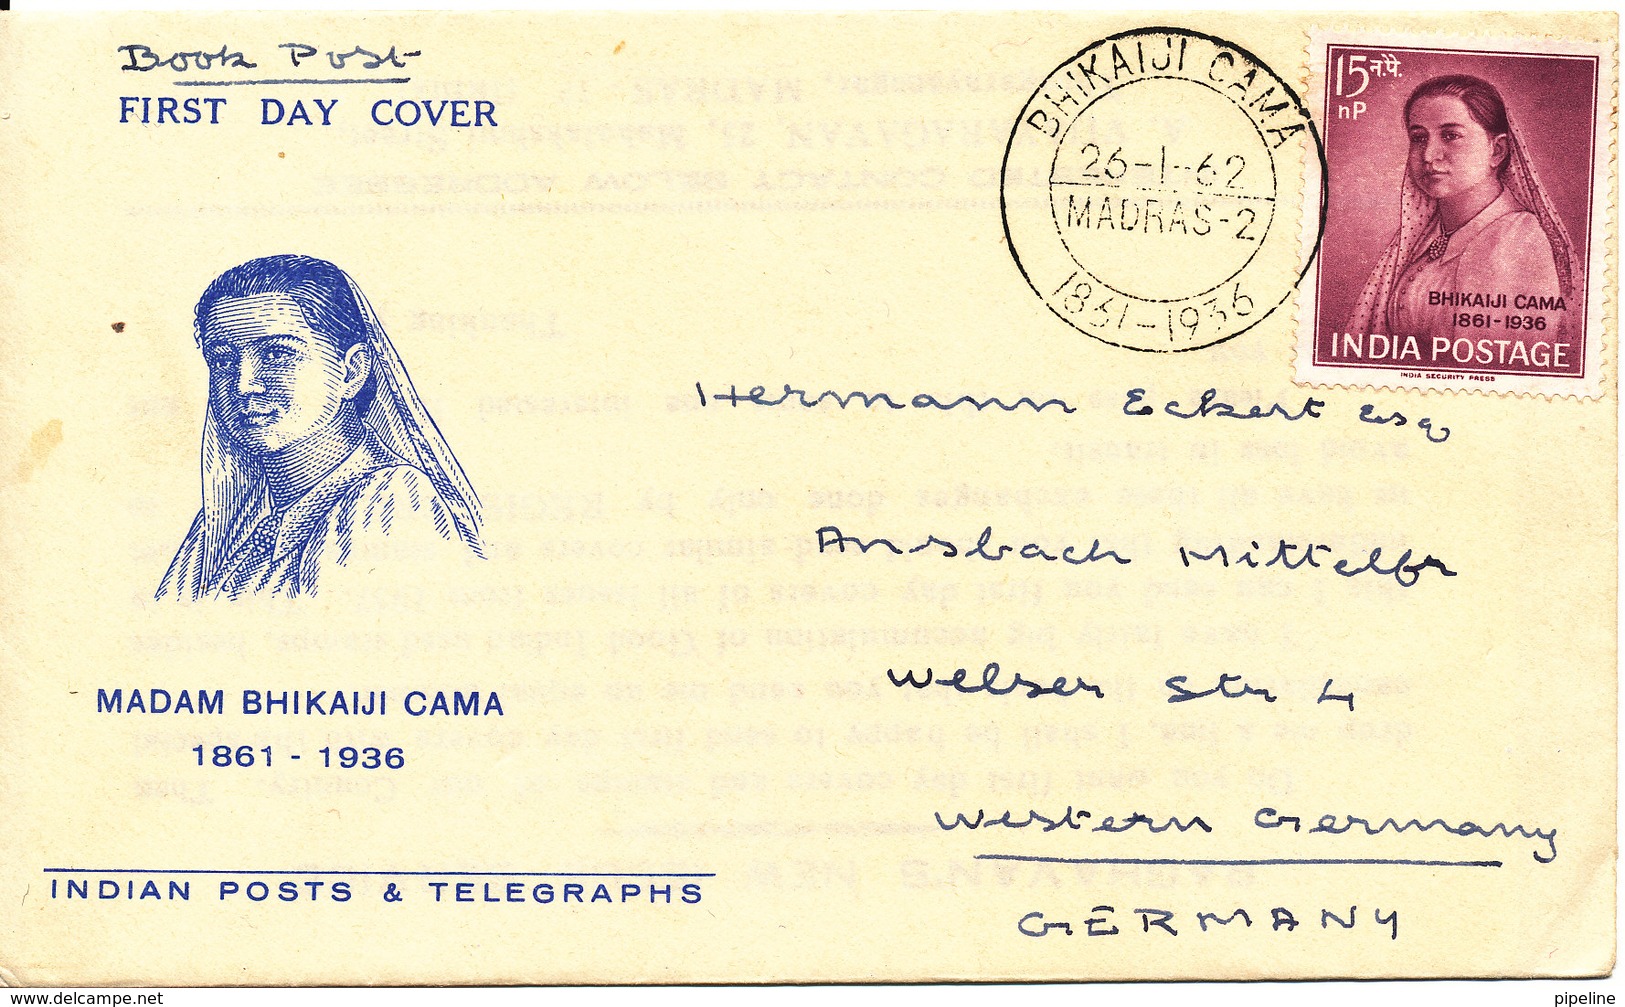 Book Post
FIRST DAY COVER
BHIKAIJI CAMA
26-1-62
MADRAS-2
1861-1936
15 न.पै.
nP
BHIKAIJI CAMA
1861-1936
INDIA POSTAGE
INDIA SECURITY PRESS
Hermann Eckert Esq
Ansbach Mittelfr
Welser Str 4
Western Germany
GERMANY
MADAM BHIKAIJI CAMA
1861 - 1936
INDIAN POSTS & TELEGRAPHS
www.delcampe.net
pipeline